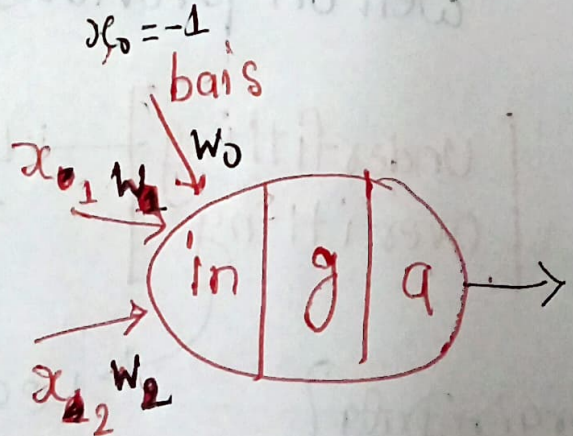 x₀ = -1
bais
w₀
x₁ w₁
in g a
x₂ w₂